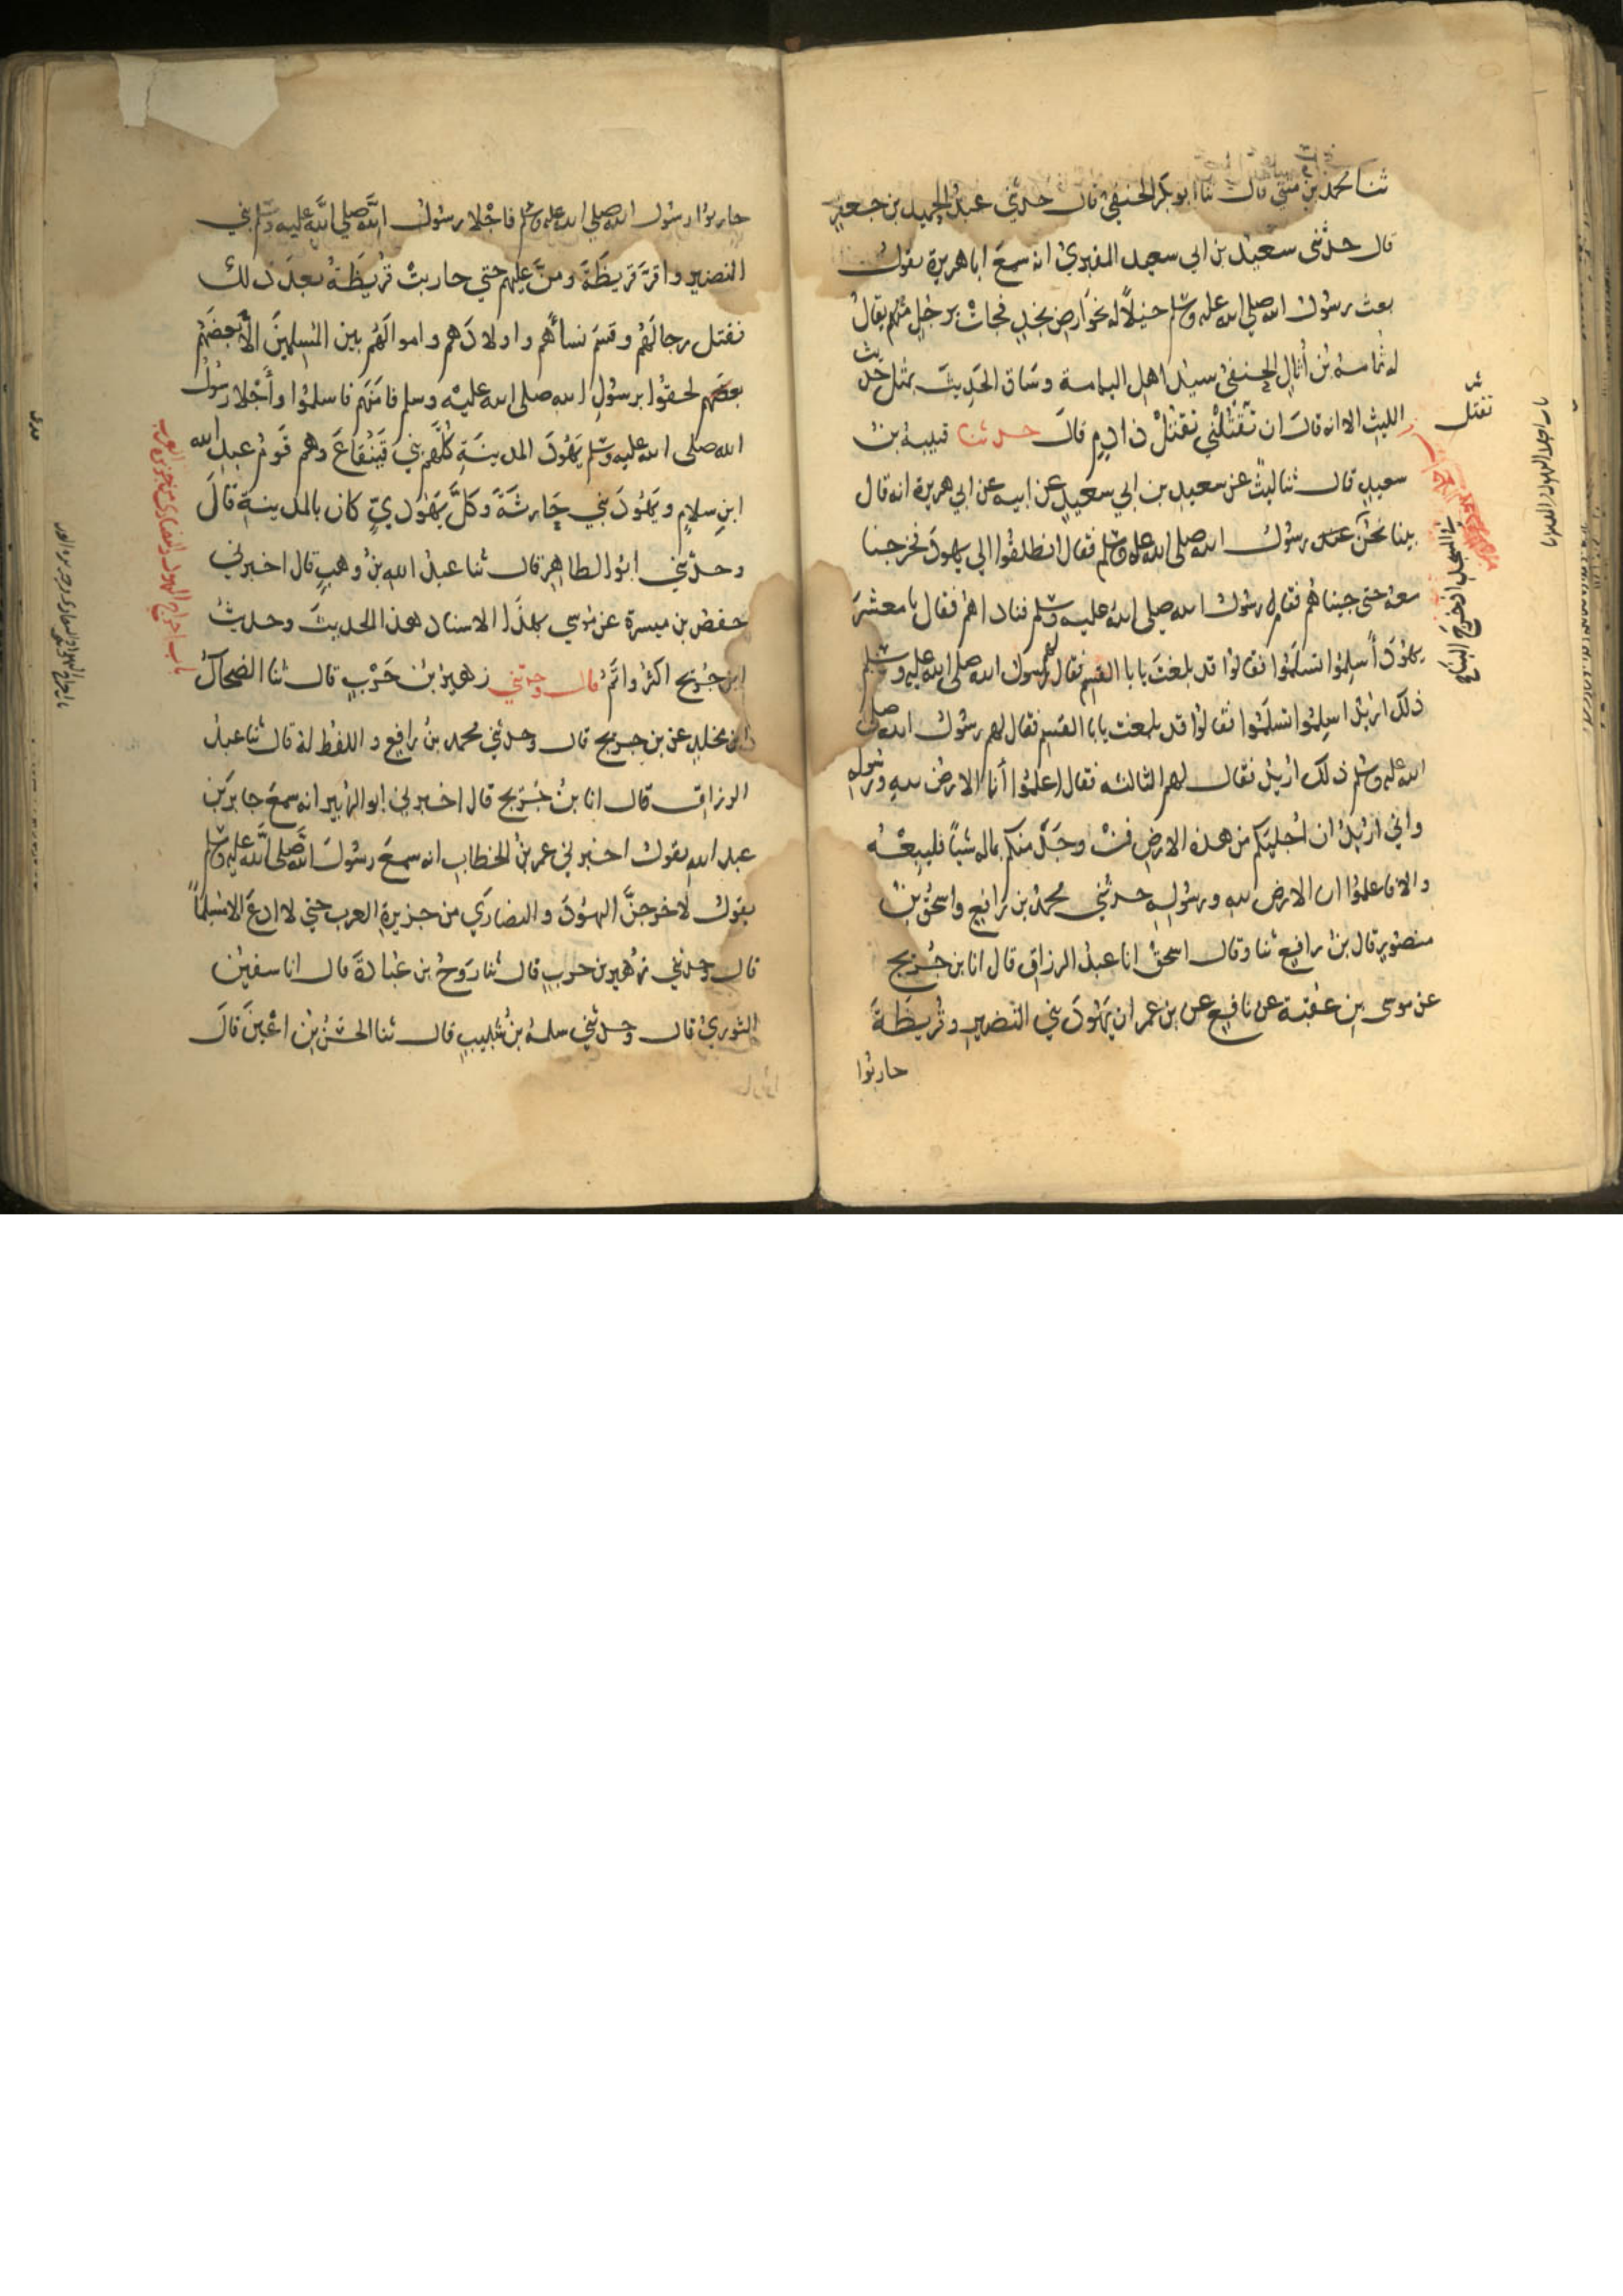 ثنا محمد بن مثني قال ثنا ابو بكر الحنفي قال حدثني عبد الحميد بن جعفر
قال حدثنى سعيد بن ابي سعيد المقبري انه سمع ابا هريرة يقول
بعث رسول الله صلي الله عليه وسلم خيلا له نحو ارض نجد فجات برجل منهم يقال
له ثمامة بن أثال الحنفي سيد اهل اليمامة وساق الحديث بمثل حديث
الليث الا انه قال ان تقتلني تقتل ذا دم قال حدثنا قتيبة بن
سعيد قال ثنا ليث عن سعيد بن ابي سعيد عن ابيه عن ابي هريرة انه قال
بينا نحن عند رسول الله صلى الله عليه وسلم فقال انطلقوا الي يهود فخرجنا
معه حتى جيناهم فقام رسول الله صلي الله عليه وسلم فناداهم فقال يا معشر
يهود أسلموا تسلموا فقالوا قد بلغت يابا القسم فقال لهم رسول الله صلى الله عليه وسلم
ذلك اريد اسلموا تسلموا فقالوا قد بلغت يابا القسم فقال لهم رسول الله صلى
الله عليه وسلم ذلك اريد فقال لهم الثالثه فقال اعلموا أنما الارض لله ورسوله
واني اريد ان اجليكم من هذه الارض فمن وجد منكم بماله شيأ فليبعه
والا فاعلموا ان الارض لله ورسوله حدثني محمد بن رافع واسحق بن
منصور قال بن رافع ثنا وقال اسحق انا عبد الرزاق قال انا بن جريج
عن موسى بن عقبة عن نافع عن بن عمر ان يهود بني النضير وقريظة
حاربوا
تقتل
حاربوا رسول الله صلي الله عليه وسلم فاجلا رسول الله صلي الله عليه وسلم بني
النضير واقر قريظة ومن عليهم حتي حاربت قريظة بعد ذلك
فقتل رجالهم وقسم نسأهم واولادهم واموالهم بين المسلمين الا بعضهم
بعضهم لحقوا برسول الله صلى الله عليه وسلم فامنهم فاسلموا وأجلا رسول
الله صلى الله عليه وسلم يهود المدينة كلهم بني قينقاع وهم قوم عبد الله
ابن سلام ويهود بني حارثة وكل يهودي كان بالمدينة قال
وحدثني ابو الطاهر قال ثنا عبد الله بن وهب قال اخبرني
حفص بن ميسرة عن موسي بهذا الاسناد هذا الحديث وحديث
ابن جريج اكثر واتم قال وحدثني زهير بن حرب قال ثنا الضحاك
بن مخلد عن بن جريج قال وحدثني محمد بن رافع واللفظ له قال ثنا عبد
الرزاق قال انا بن جريج قال اخبرني ابو الزبير انه سمع جابر بن
عبد الله يقول اخبرني عمر بن الخطاب انه سمع رسول الله صلى الله عليه وسلم
يقول لاخرجن اليهود والنصاري من جزيرة العرب حتي لا ادع الا مسلما
قال وحدثني زهير بن حرب قال ثنا روح بن عبادة قال انا سفين
الثوري قال وحدثني سلمة بن شبيب قال ثنا الحسن بن اعين قال
باب اخراج اليهود والنصارى من جزيرة العرب